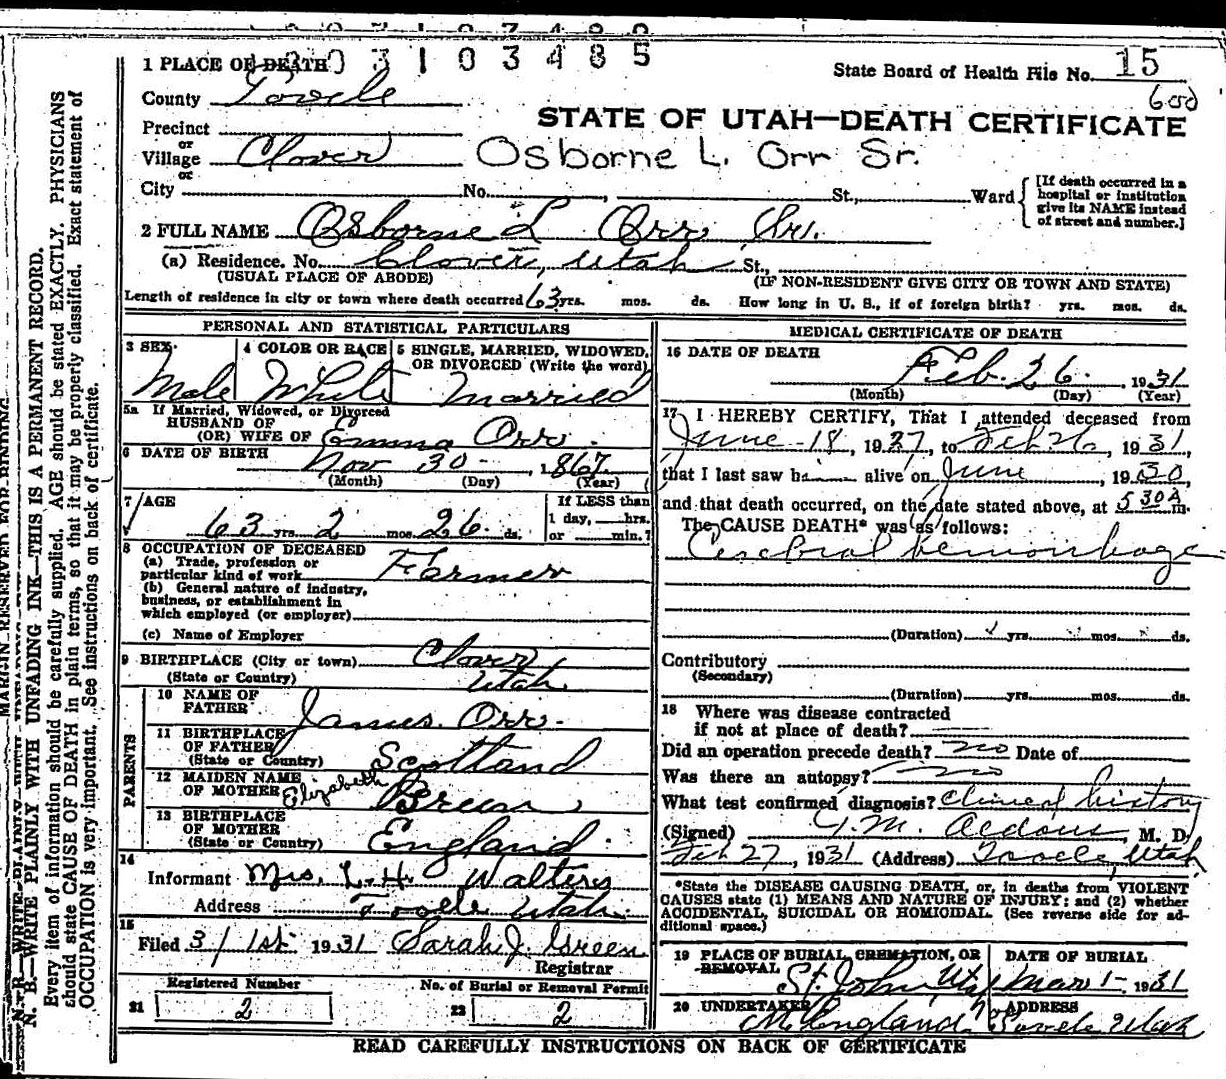 0 3 1 0 3 4 8 5
1 PLACE OF DEATH
State Board of Health File No. 15
County Tooele
600
STATE OF UTAH—DEATH CERTIFICATE
Precinct
or
Village Clover
Osborne L. Orr Sr.
or
City No. , St., Ward
[If death occurred in a
hospital or institution
give its NAME instead
of street and number.]
2 FULL NAME Osborne L Orr Sr.
(a) Residence. No. Clover, Utah St.,
(USUAL PLACE OF ABODE) (IF NON-RESIDENT GIVE CITY OR TOWN AND STATE)
Length of residence in city or town where death occurred 63 yrs. mos. ds. How long in U. S., if of foreign birth? yrs. mos. ds.
PERSONAL AND STATISTICAL PARTICULARS
3 SEX 4 COLOR OR RACE 5 SINGLE, MARRIED, WIDOWED,
OR DIVORCED (Write the word)
Male White Married
5a If Married, Widowed, or Divorced
HUSBAND OF
(OR) WIFE OF Emma Orr.
6 DATE OF BIRTH Nov 30 , 1867
(Month) (Day) (Year)
7 AGE
If LESS than
1 day, hrs.
or min.?
63 yrs. 2 mos. 26 ds.
8 OCCUPATION OF DECEASED
(a) Trade, profession or
particular kind of work Farmer
(b) General nature of industry,
business, or establishment in
which employed (or employer)
(c) Name of Employer
9 BIRTHPLACE (City or town) Clover
(State or Country) Utah
PARENTS
10 NAME OF
FATHER James Orr.
11 BIRTHPLACE
OF FATHER
(State or Country) Scotland
12 MAIDEN NAME
OF MOTHER Elizabeth Breen
13 BIRTHPLACE
OF MOTHER
(State or Country) England
14
Informant Mrs. L. H. Walters
Address Tooele Utah
15
Filed 3/1st 1931 Sarah J. Green
Registrar
Registered Number No. of Burial or Removal Permit
21 2 22 2
MEDICAL CERTIFICATE OF DEATH
16 DATE OF DEATH
Feb. 26. , 1931
(Month) (Day) (Year)
17 I HEREBY CERTIFY, That I attended deceased from
June 18, 1927, to Feb 26, 1931,
that I last saw h alive on June , 1930,
and that death occurred, on the date stated above, at 530 A m.
The CAUSE DEATH* was as follows:
Cerebral hemorrhage
(Duration) yrs. mos. ds.
Contributory
(Secondary)
(Duration) yrs. mos. ds.
18 Where was disease contracted
if not at place of death?
Did an operation precede death? no Date of
Was there an autopsy? no
What test confirmed diagnosis? Clinical history
(Signed) J. M. Aldous , M. D.
Feb 27, 1931 (Address) Tooele, Utah
*State the DISEASE CAUSING DEATH, or, in deaths from VIOLENT
CAUSES state (1) MEANS AND NATURE OF INJURY; and (2) whether
ACCIDENTAL, SUICIDAL OR HOMICIDAL. (See reverse side for ad-
ditional space.)
19 PLACE OF BURIAL, CREMATION, OR
REMOVAL St. John Utah
DATE OF BURIAL
Mar 1 - 1931
20 UNDERTAKER
ADDRESS
Tooele Utah
READ CAREFULLY INSTRUCTIONS ON BACK OF CERTIFICATE
MARGIN RESERVED FOR BINDING
N. B.—WRITE PLAINLY WITH UNFADING INK—THIS IS A PERMANENT RECORD.
Every item of information should be carefully supplied. AGE should be stated EXACTLY. PHYSICIANS
should state CAUSE OF DEATH in plain terms, so that it may be properly classified. Exact statement of
OCCUPATION is very important. See instructions on back of certificate.